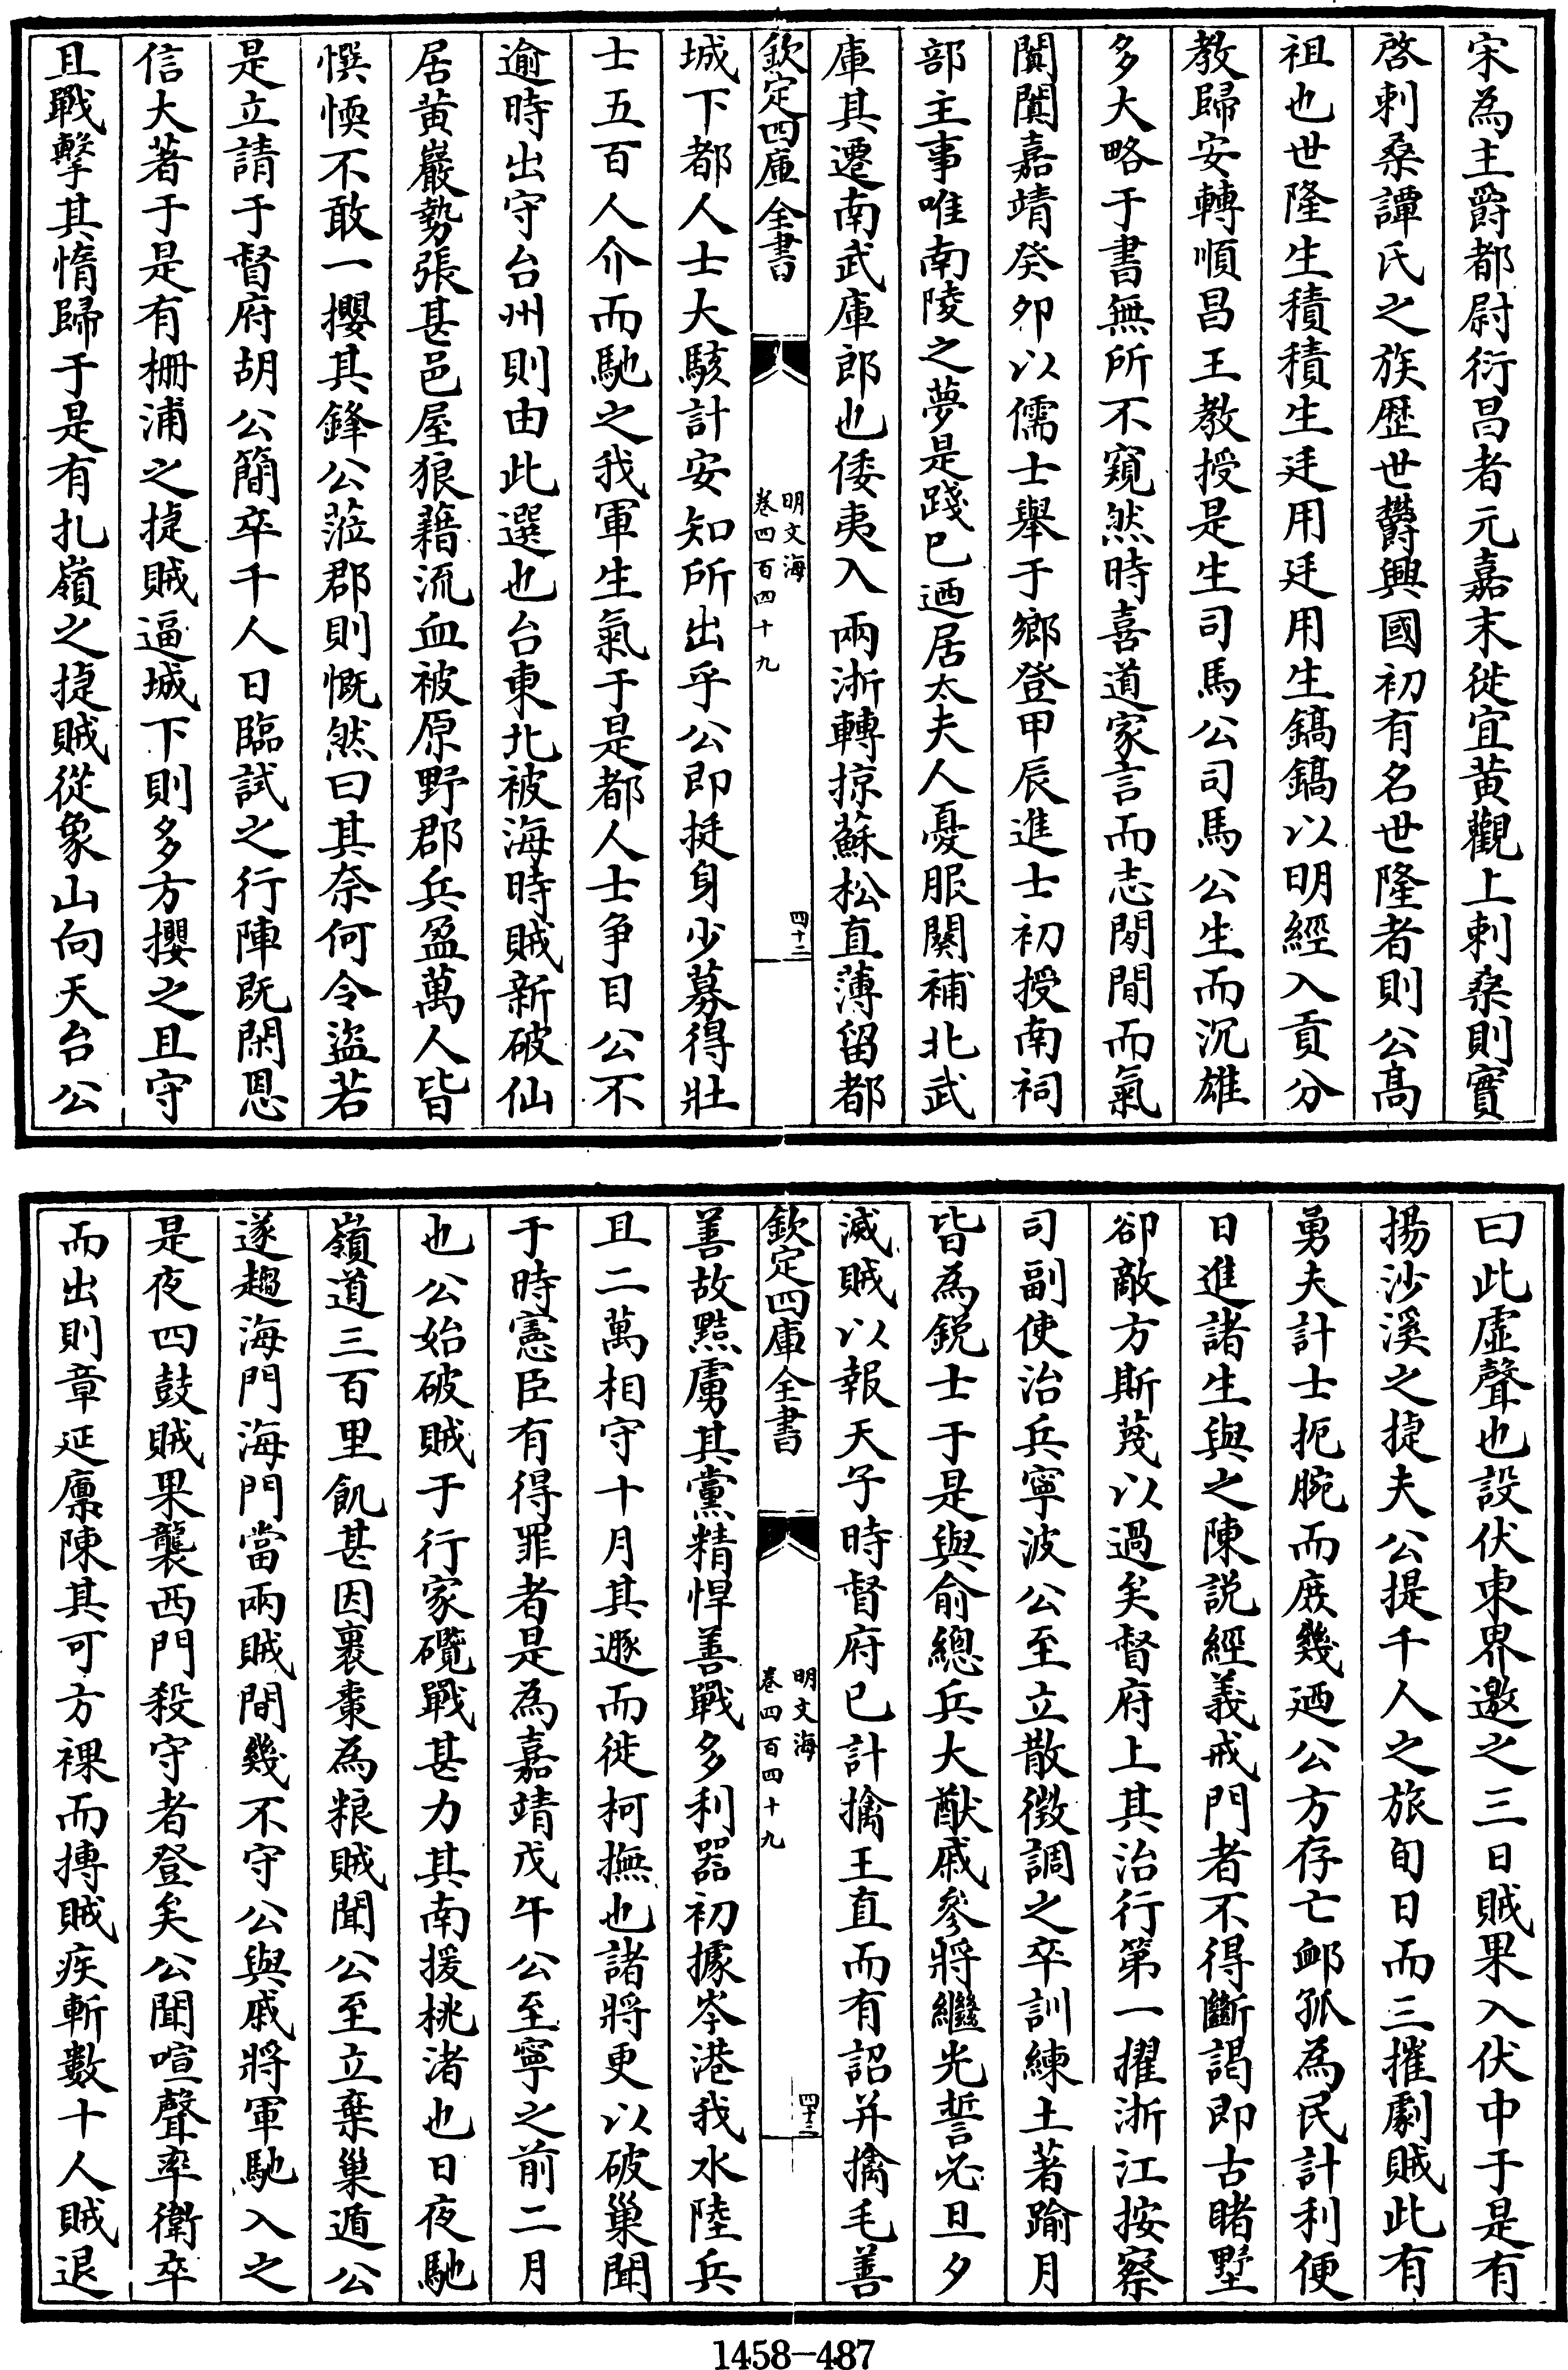 宋為主爵都尉衍昌者元嘉末徙宜黄觀上剌桑則實
啓剌桑譚氏之族歴世欝興國初有名世隆者則公高
祖也世隆生積積生廷用廷用生鎬鎬以明經入貢分
教歸安轉順昌王教授是生司馬公司馬公生而沉雄
多大略于書無所不窺然時喜道家言而志閒閒而氣
闐闐嘉靖癸卯以儒士舉于鄉登甲辰進士初授南祠
部主事唯南陵之夢是踐已迺居太夫人憂服闋補北武
庫其遷南武庫郎也倭夷入兩浙轉掠蘇松直薄留都
欽定四庫全書
明文海
卷四百四十九
四十二
城下都人士大駭計安知所出乎公即挺身少募得壯
士五百人介而馳之我軍生氣于是都人士争目公不
逾時出守台州則由此選也台東北被海時賊新破仙
居黄巖勢張甚邑屋狼藉流血被原野郡兵盈萬人皆
惧愞不敢一攖其鋒公蒞郡則慨然曰其奈何令盜若
是立請于督府胡公簡卒千人日臨試之行陣既閑恩
信大著于是有栅浦之捷賊逼城下則多方攖之且守
且戰擊其惰歸于是有扎嶺之捷賊從象山向天台公
曰此虚聲也設伏東界邀之三日賊果入伏中于是有
揚沙溪之捷夫公提千人之旅旬日而三摧劇賊此有
勇夫計士扼腕而庻幾迺公方存亡䘏孤為民計利便
日進諸生與之陳説經義戒門者不得斷謁即古睹墅
卻敵方斯蔑以過矣督府上其治行第一擢浙江按察
司副使治兵寧波公至立散徴調之卒訓練土著踰月
皆為鋭士于是與俞總兵大猷戚參將繼光誓必旦夕
滅賊以報天子時督府已計擒王直而有詔并擒毛善
欽定四庫全書
明文海
卷四百四十九
四十三
善故㸃虜其黨精悍善戰多利器初據岑港我水陸兵
且二萬相守十月其遯而徙柯撫也諸將更以破巢聞
于時憲臣有得罪者是為嘉靖戊午公至寧之前二月
也公始破賊于行家礮戰甚力其南援桃渚也日夜馳
嶺道三百里飢甚因裹棗為粮賊聞公至立棄巢遁公
遂趨海門海門當兩賊間幾不守公與戚將軍馳入之
是夜四鼓賊果襲西門殺守者登矣公聞喧聲率衛卒
而出則章延廪陳其可方裸而搏賊疾斬數十人賊退
1458-487